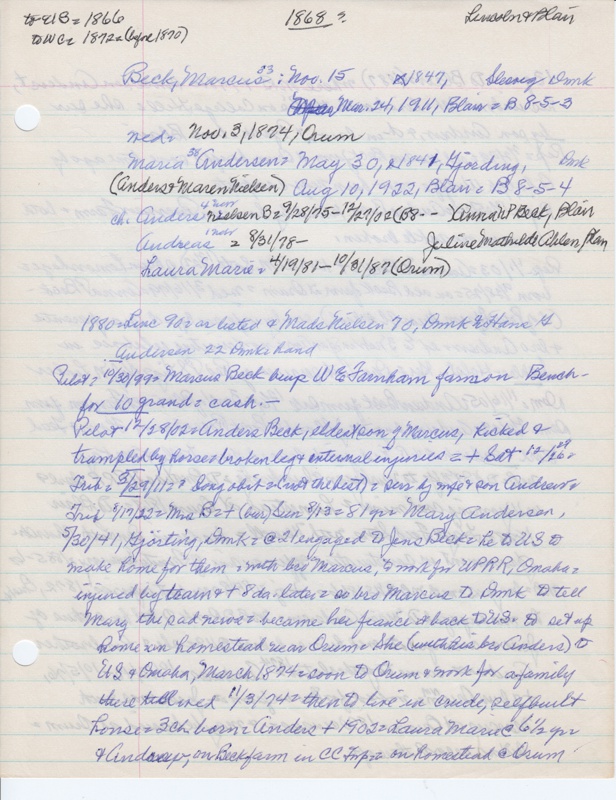 to NB = 1866 1868 ? Lincoln & Blair
to WC = 1872 = (before 1870)
Beck, Marcus 23 : Nov. 15 1847, Slesvig Dmk
Mar. 24, 1911, Blair = B 8-5-3
wed = Nov. 3, 1874, Orum
Maria 38 Andersen = May 30, 1841, Gjording, Dmk
(Anders & Maren Nielsen) Aug 10, 1922, Blair = B 8-5-4
ch. Anders Nielsen B = 9/28/75 - 12/27/02 (B8--
Andreas = 8/31/78 - Juline Mathilde
Laura Marie = 4/19/81 - 10/31/87 (Orum)
1880 = Linc 90 = as listed & Mads Nielsen 70, Dmk & Hans
Andersen 22 Dmk = hand
Pilot = 10/30/99 = Marcus Beck buys W E Farnham farm
for 10 grand = cash. -
Pilot 12/28/02 = Anders Beck, eldest son of Marcus, kicked &
trampled by horse = broken leg & internal injuries = + Sat 12/
Trib = 3/29/11 = long obit = (not the best) = surv by wife & son Andrew =
Trib 8/17/22 = Mrs B = + (bur) Sun 8/13 = 81 yr = Mary Andersen,
5/30/41, Gjorting, Dmk = @ 21 engaged to Jens Beck = he to US to
make home for them = with bro Marcus, to work for UPRR, Omaha =
injured by team & + 8 da. later = so bro Marcus to Dmk to tell
Mary the sad news = became her fiance & back to US = to set up
home on homestead near Orum = She (with bro Anders) to
US & Omaha, March 1874 = soon to Orum & work for a family
there till wed 11/3/74 = then to live in crude, selfbuilt
house = 3 ch. born = Anders + 1902 = Laura Marie @ 6 1/2 yr
& Andrew, on Beck farm in CC Twp = on homestead @ Orum